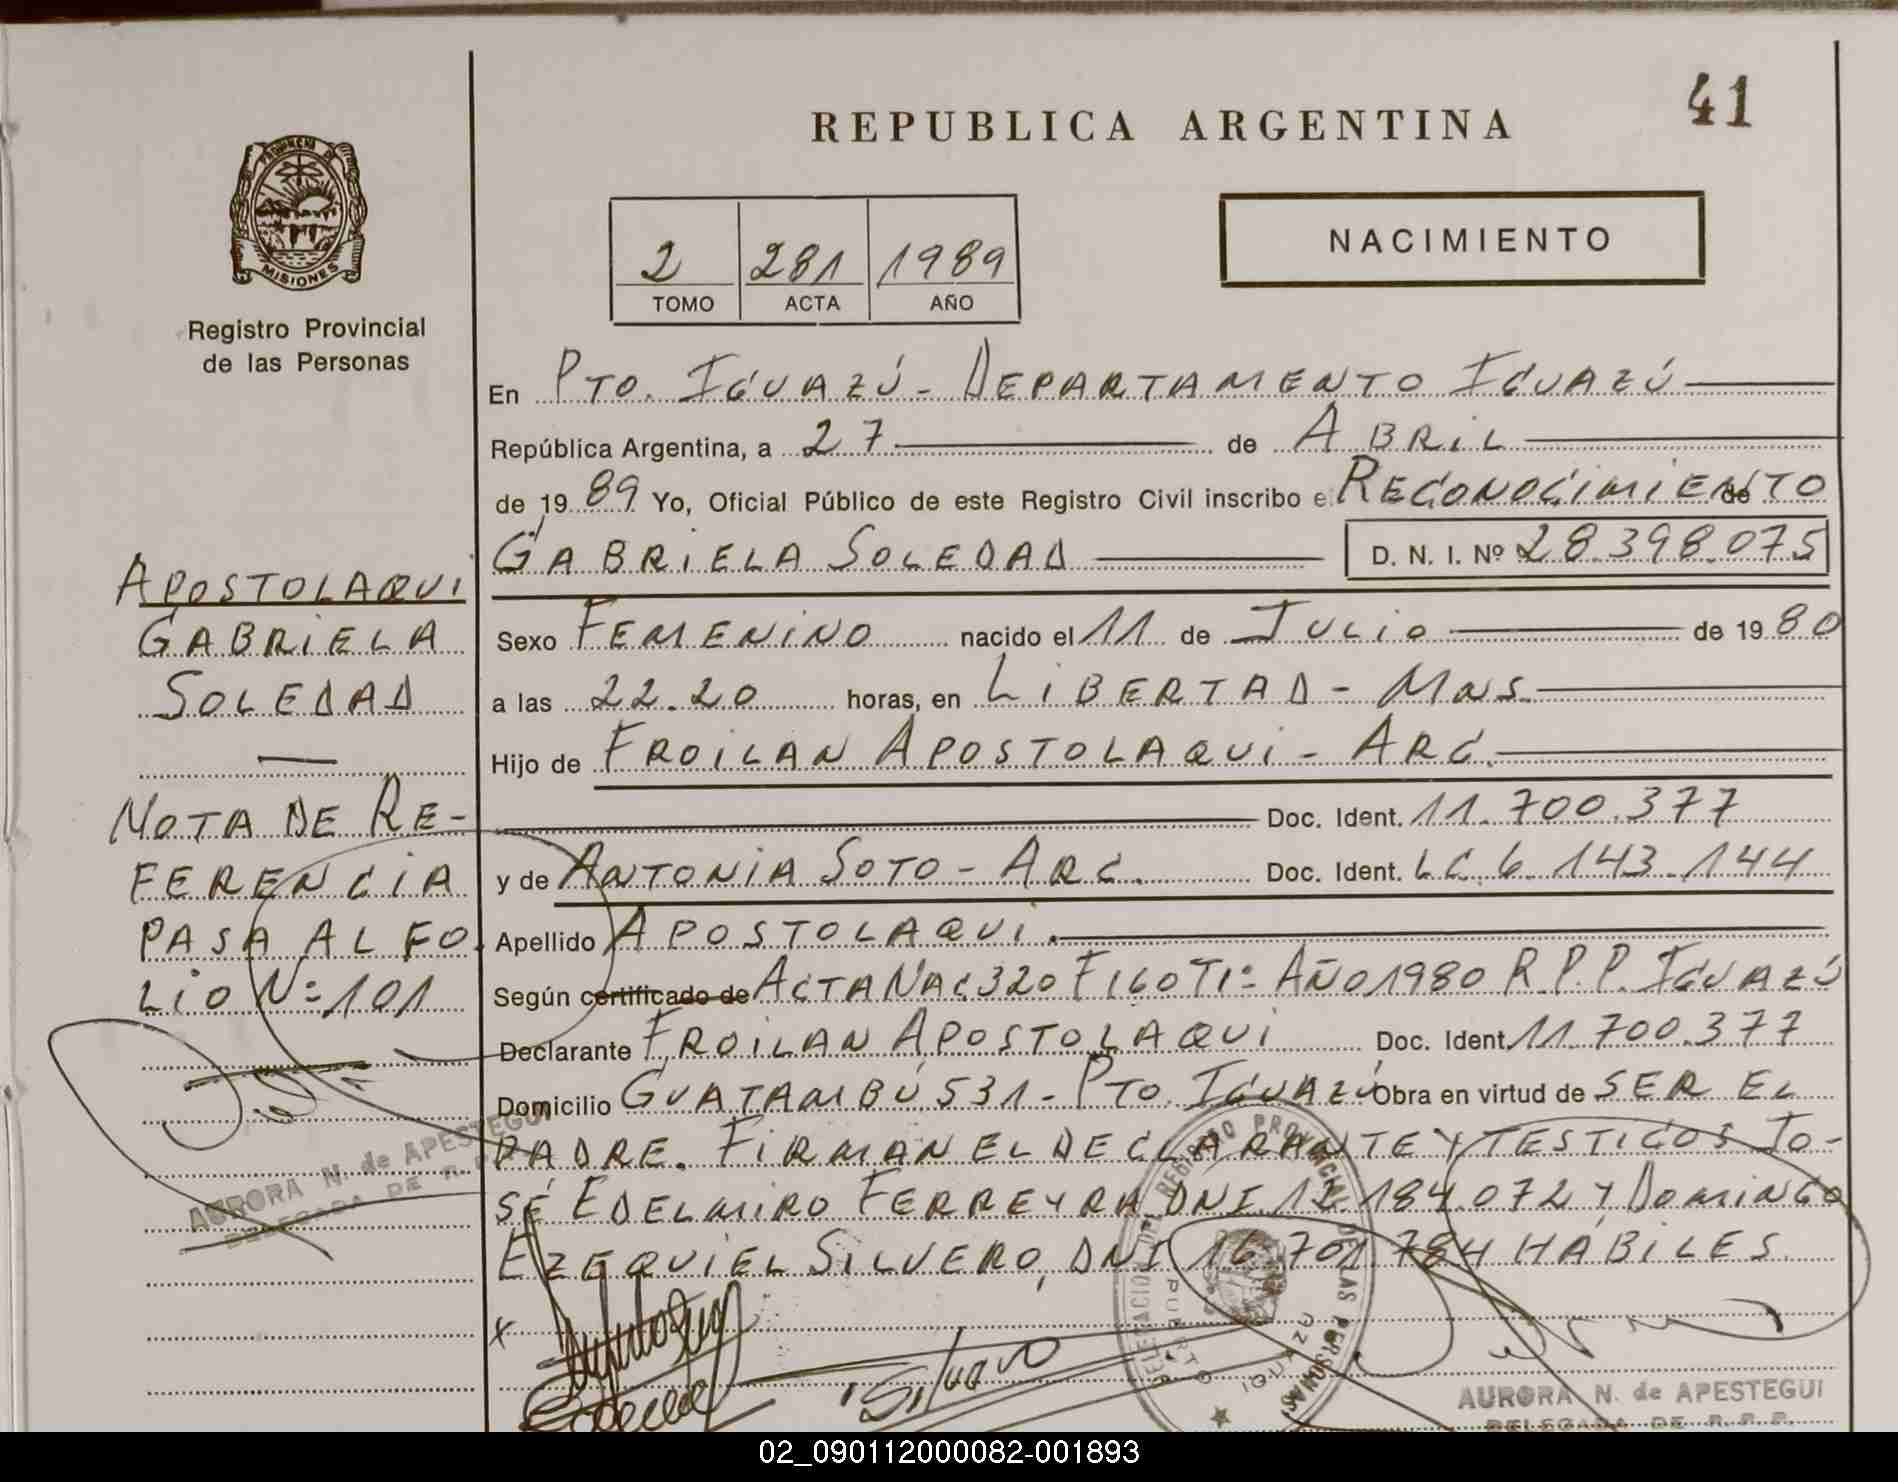 41
REPUBLICA ARGENTINA
PROVINCIA DE
MISIONES
Registro Provincial
de las Personas
2 281 1989
TOMO ACTA AÑO
NACIMIENTO
En PTO. IGUAZÚ - DEPARTAMENTO IGUAZÚ
República Argentina, a 27 de ABRIL
de 1989 Yo, Oficial Público de este Registro Civil inscribo e RECONOCIMIENTO de
GABRIELA SOLEDAD D. N. I. Nº 28.398.075
Sexo FEMENINO nacido el 11 de JULIO de 1980
a las 22.20 horas, en LIBERTAD - MNS.
Hijo de FROILAN APOSTOLAQUI - ARG.
Doc. Ident. 11.700.377
y de ANTONIA SOTO - ARG. Doc. Ident. LC. 6.143.144
Apellido APOSTOLAQUI.
Según certificado de ACTA NAC 320 F160 T1º AÑO 1980 R.P.P. IGUAZÚ
Declarante FROILAN APOSTOLAQUI Doc. Ident. 11.700.377
Domicilio GUATAMBÚ 531 - PTO. IGUAZÚ Obra en virtud de SER EL
PADRE. FIRMAN EL DECLARANTE Y TESTIGOS JO-
SÉ EDELMIRO FERREYRA DNI 12.184.072 Y DOMINGO
EZEQUIEL SILVERO, DNI 16.701.784 HÁBILES.
X
Silvero
APOSTOLAQUI
GABRIELA
SOLEDAD
NOTA DE RE-
FERENCIA
PASA AL FO-
LIO Nº 101
AURORA N. de APESTEGUI
DELEGADA DE R. P.
DELEGACION DEL REGISTRO PROVINCIAL DE LAS PERSONAS
PUERTO IGUAZU
AURORA N. de APESTEGUI
DELEGADA DE R. P. P.
02_090112000082-001893